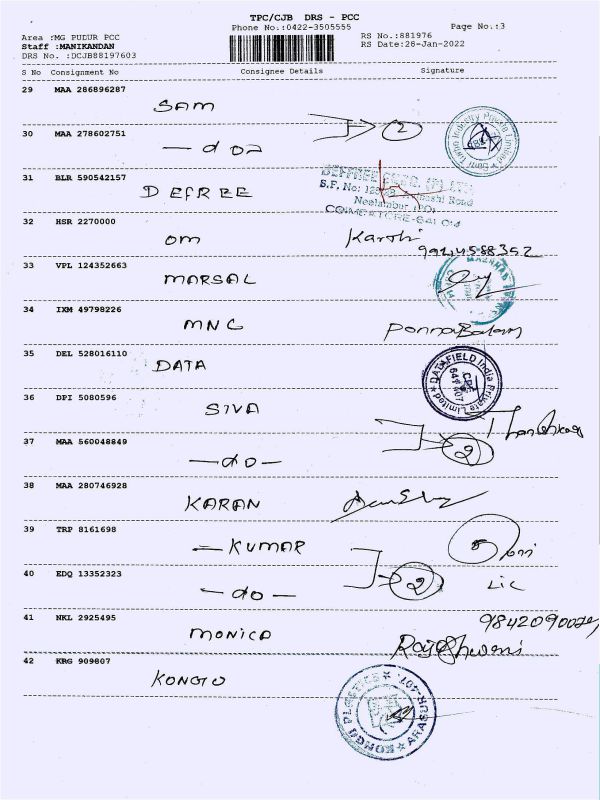 TPC/CJB DRS - PCC
Phone No.:0422-3505555
Page No.:3
Area :MG PUDUR PCC
RS No.:881976
Staff :MANIKANDAN
RS Date:26-Jan-2022
DRS No. :DCJB88197603
S No Consignment No Consignee Details Signature
29 MAA 286896287
SAM
30 MAA 278602751
2
— do
31 BLR 590542157
DEFREE
S.F. No: Road
Neelambur (PO)
32 HSR 2270000
om
9944588352
33 VPL 124352663
MARSAL
34 IXM 49798226
MNC
35 DEL 528016110
DATA
DATAFIELD India Private Limited
CBE
641 407
36 DPI 5080596
SIVA
37 MAA 560048849
— do —
2
38 MAA 280746928
KARAN
39 TRP 8161698
— KUMAR
40 EDQ 13352323
— do —
2
Lic
41 NKL 2925495
MONICA
42 KRG 909807
KONGU
KONGU PLASTICS
ARASUR-407